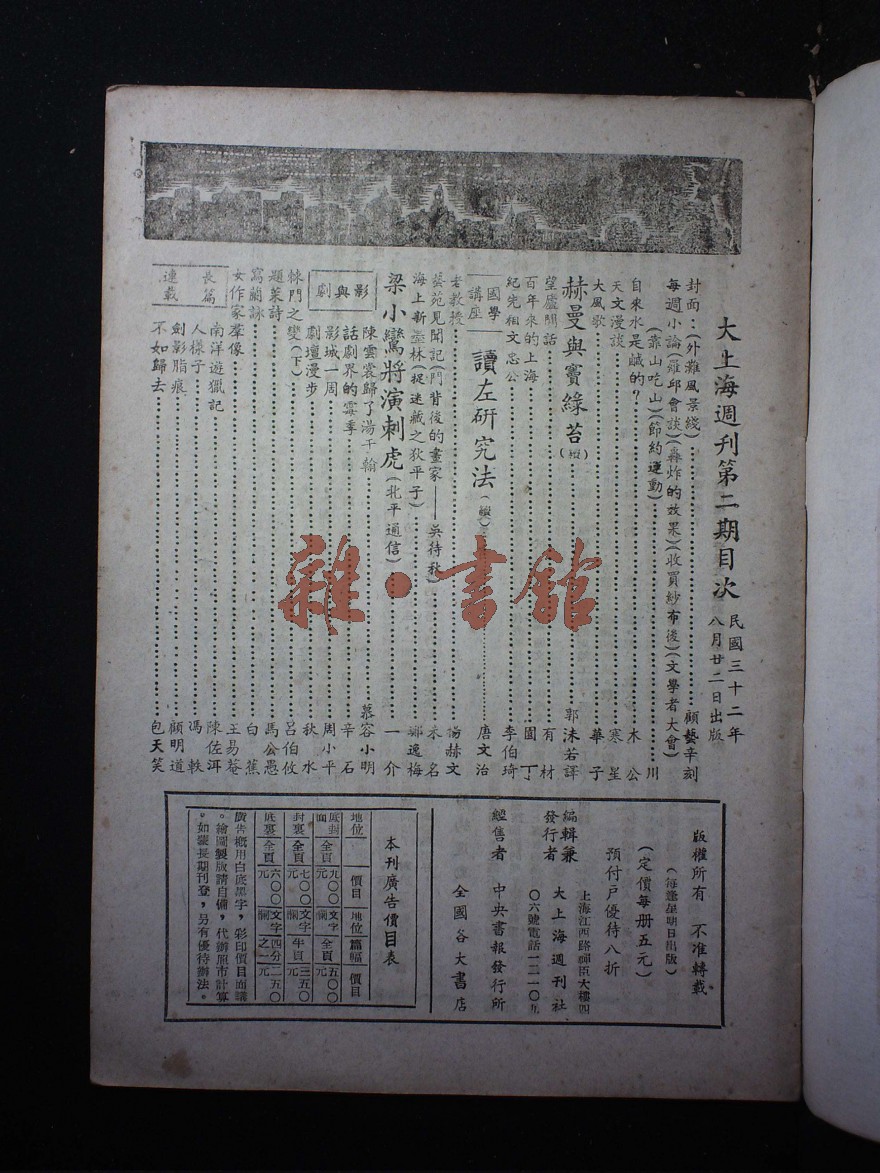 大上海週刊第二期目次
民國三十二年
八月廿二日出版
封面:(外灘風景綫)……顧藝辛刻
每週小論(雍邱會談)(轟炸的效果)(收買紗布後)(文學者大會)
(靠山吃山)(節約運動)……川
自來水是鹹的?……木公
天文漫談……寒星
大風歌……華子
赫曼與竇綠苔(續)……郭沫若譯
望廬閒話……有材
百年來的上海……園丁
紀先祖文忠公……李伯琦
國學講座
讀左研究法(續)……唐文治
老教授……楊赫文
藝苑見聞記(門背後的畫家——吳待秋)……未名
海上新墨林(捉迷藏之狄平子)……鄭逸梅
梁小鸞將演刺虎(北平通信)……一介
影與劇
陳雲裳歸了湯于翰……慕容小明
話劇界的霉季……辛石
影城一周……周小平
劇壇漫步……秋水
棘門之變(下)……呂伯攸
題菜詩……馬公愚
寫蘭詠……白蕉
女作家羣像……王易菴
長篇連載
南洋遊獵記……陳佐洱
人樣子……馮軼
劍影脂痕……顧明道
不如歸去……包天笑
版權所有 不准轉載
(每逢星期日出版)
(定價每册五元)
預付戶優待八折
編輯兼發行者 大上海週刊社
上海江西路禪臣大樓四
〇六號電話一二一〇九
經售者 中央書報發行所
全國各大書店
本刊廣告價目表
地位 價目 地位 篇幅 價目
底封面 全頁 九〇〇元 文字欄 全頁 五〇〇元
封裏 全頁 七〇〇元 文字欄 半頁 三五〇元
底裏 全頁 六〇〇元 文字欄 四分之一 二五〇元
廣告概用白底黑字,彩印價目面議
。繪圖製版請自備,代辦照市計算
。如蒙長期刊登,另有優待辦法。
雜·書館